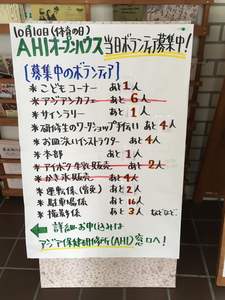 10月10日(体育の日)
AHIオープンハウス 当日ボランティア募集中!
[募集中のボランティア]
* こどもコーナー あと1人
* アジアンカフェ あと6人
* サインラリー あと1人
* 研修生のワークショップ手伝い あと4人
* お皿洗いインストラクター あと4人
* 本部 あと1人
* アイボク牛乳販売 あと2人
* かき氷販売 あと4人
* 運転係(送迎) あと2人
* 駐車場係 あと16人
* 撮影係 あと3人 などなど
詳細・お申し込みは
アジア保健研修所(AHI)窓口へ!